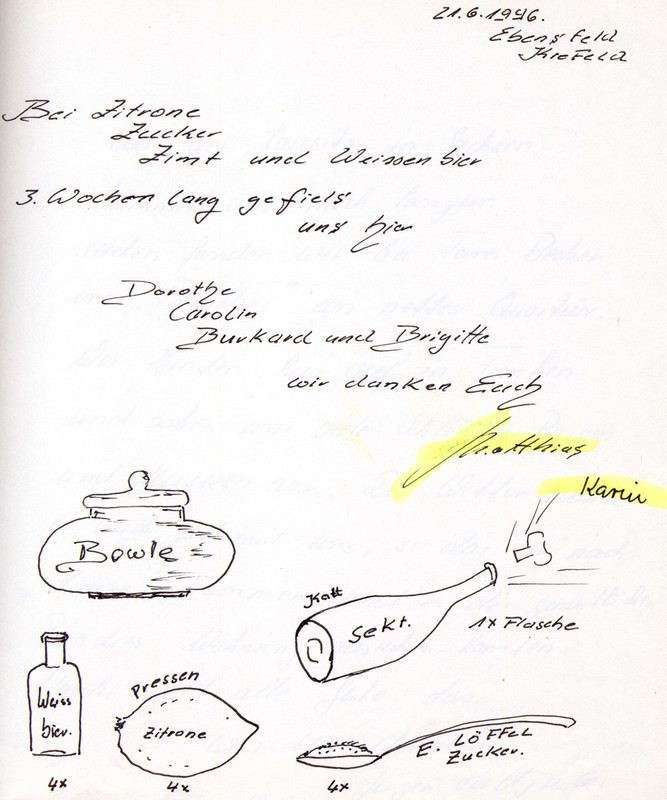 21.6.1996.
Ebensfeld
Krefeld
Bei Zitrone
Zucker
Zimt und Weissenbier
3. Wochen lang gefiels
uns hier
Dorothe
Carolin
Burkard und Brigitte
wir danken Euch
Matthias
Karin
Bowle
Katt
Sekt.
1x Flasche
Weiss
bier.
4x
pressen
Zitrone
4x
E. LÖFFEL
Zucker.
4x